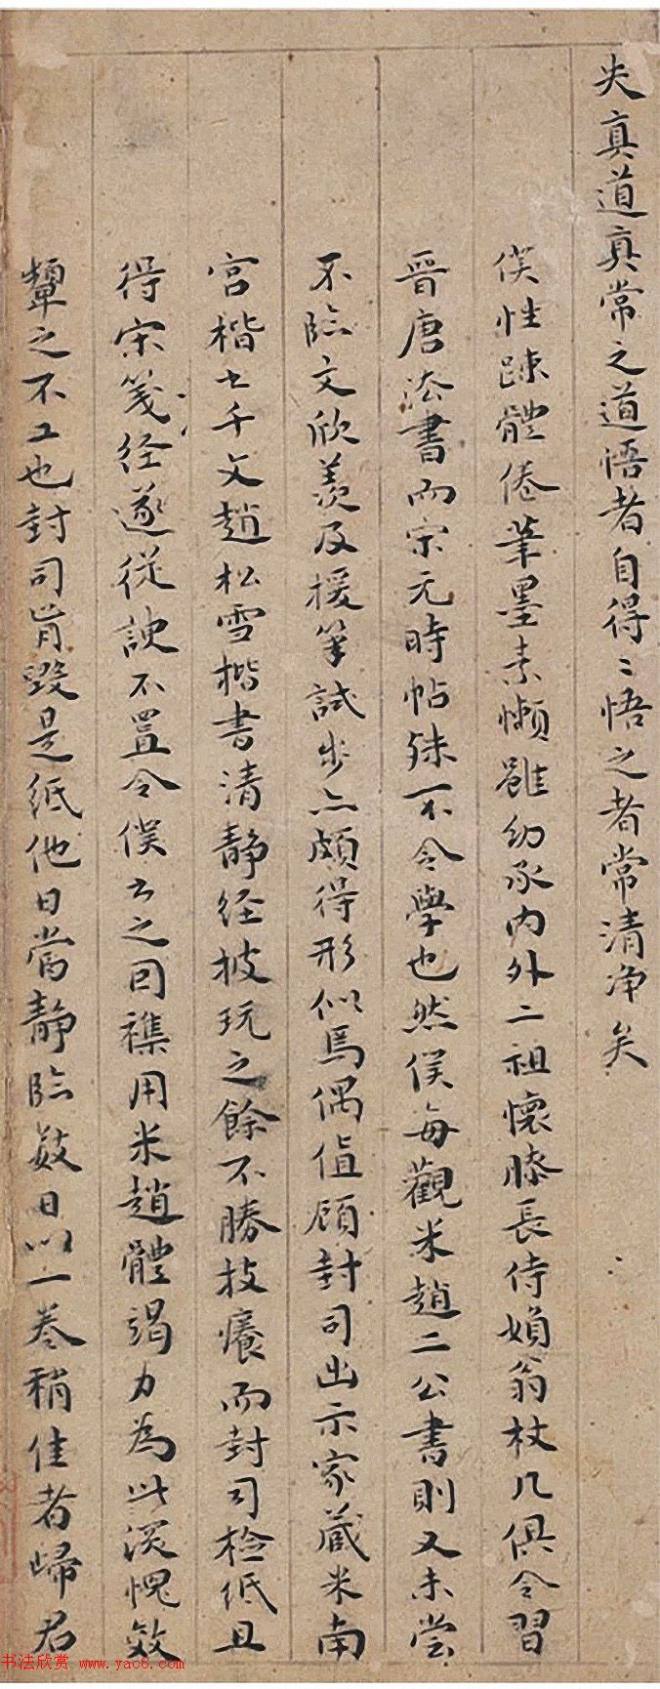 失真道真常之道悟者自得得悟之者常清净矣
僕性踈體倦筆墨素懶雖幼承内外二祖懷膝長侍婦翁杖几俱令習
晋唐法書而宋元時帖殊不令學也然僕每觀米趙二公書則又未嘗
不臨文欣羡及援筆試步亦頗得形似焉偶值顧封司出示家藏米南
宫楷書千文趙松雪楷書清静經披玩之餘不勝技癢而封司檢紙且
得宋箋経遂從諛不置令僕書之因襍用米趙體竭力為此深愧效
顰之不工也封司肯毁是紙他日當静臨數日以一卷稍佳者歸君
书法欣赏 www.yac8.com